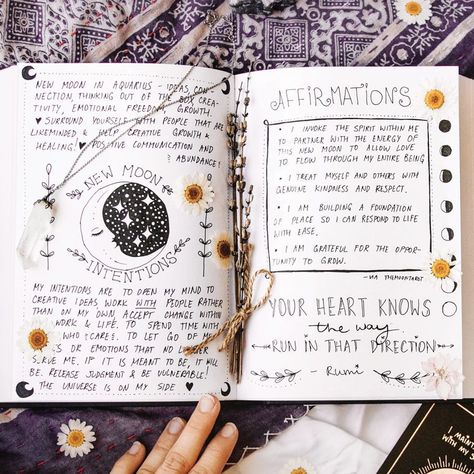 NEW MOON IN AQUARIUS - IDEAS, CON-
NECTION, THINKING OUT OF THE BOX CREA-
TIVITY, EMOTIONAL FREEDOM, GROWTH.
♥ SURROUND YOURSELF WITH PEOPLE THAT ARE
LIKEMINDED & HELP CREATIVE GROWTH &
HEALING! ♥ POSITIVE COMMUNICATION AND
ABUNDANCE!
NEW MOON
INTENTIONS
MY INTENTIONS ARE TO OPEN MY MIND TO
CREATIVE IDEAS WORK WITH PEOPLE RATHER
THAN ON MY OWN, ACCEPT CHANGE WITHIN
WORK & LIFE. TO SPEND TIME WITH
WHO CARE. TO LET GO OF
OR EMOTIONS THAT NO LONGER
SERVE ME. IF IT IS MEANT TO BE, IT WILL
BE. RELEASE JUDGMENT & BE VULNERABLE!
THE UNIVERSE IS ON MY SIDE ♥
AFFIRMATIONS
• I INVOKE THE SPIRIT WITHIN ME
TO PARTNER WITH THE ENERGY OF
THIS NEW MOON TO ALLOW LOVE
TO FLOW THROUGH MY ENTIRE BEING
• I TREAT MYSELF AND OTHERS WITH
GENUINE KINDNESS AND RESPECT.
• I AM BUILDING A FOUNDATION
OF PEACE SO I CAN RESPOND TO LIFE
WITH EASE.
• I AM GRATEFUL FOR THE OPPOR-
TUNITY TO GROW.
- VIA THEMOONTAROT
YOUR HEART KNOWS
the way
RUN IN THAT DIRECTION
- Rumi -